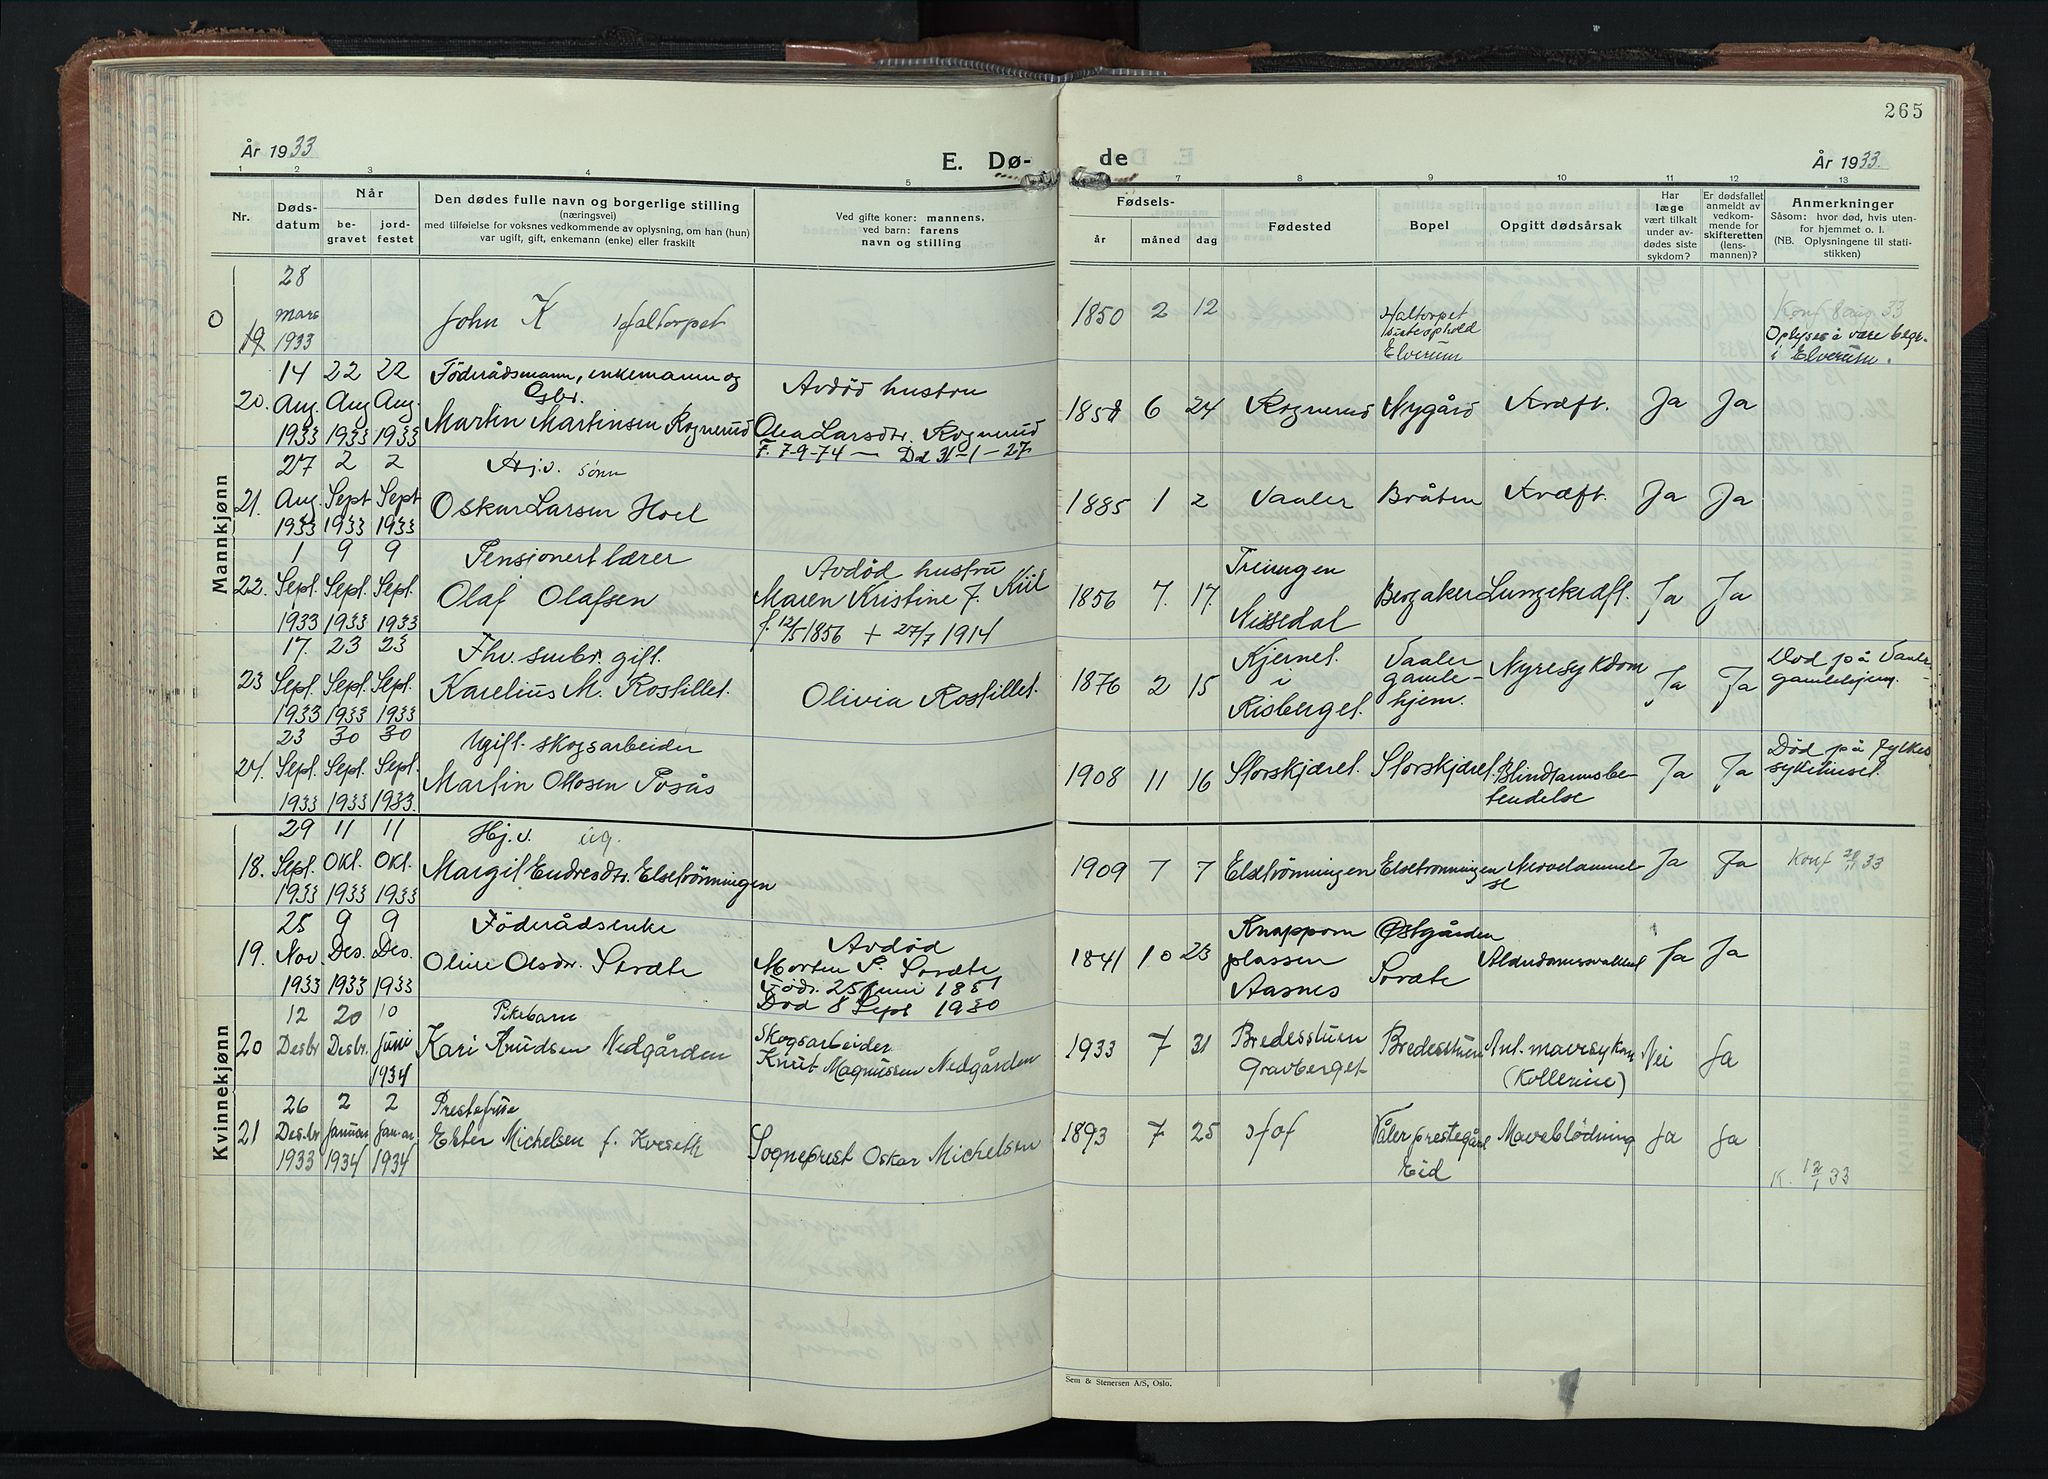 265
År 1933
E. Dø-
de
År 1933.
1 2 3 4 5 7 8 9 10 11 12 13
Nr.
Døds-
datum
Når
be-
gravet
jord-
festet
Den dødes fulle navn og borgerlige stilling
(næringsvei)
med tilføielse for voksnes vedkommende av oplysning, om han (hun)
var ugift, gift, enkemann (enke) eller fraskilt
Ved gifte koner: mannens,
ved barn: farens
navn og stilling
Fødsels-
år måned dag
Fødested
Bopel
Opgitt dødsårsak
Har
læge
vært tilkalt
under av-
dødes siste
sykdom?
Er dødsfallet
anmeldt av
vedkom-
mende for
skifteretten
(lens-
mannen)?
Anmerkninger
Såsom: hvor død, hvis uten-
for hjemmet o. l.
(NB. Oplysningene til stati-
stikken)
Mannkjønn
O
19
28
mars
1933
John K Haltorpet
1850 2 12
Haltorpet
sisteophold
Elverum
Konf 8 aug 33
Oplyses å være begr.
i Elverum.
20.
14 22 22
Aug. Aug Aug.
1933 1933 1933
Föderådsmann, enkemann og
Gbr.
Martin Martinsen Rognerud
Avdød hustru
Olea Larsdtr. Rognerud
F. 7-9-74 — Dd 31-1-27
1851 6 24
Rognerud
Nygård
Kræft.
Ja
Ja
21.
27 2 2
Aug. Sept Sept
1933 1933 1933
Hj.v. sønn
Oskar Larsen Hoel
1885 1 2
Vaaler
Bråten
Kræft.
Ja
Ja
22.
1 9 9
Sept. Sept. Sept.
1933 1933 1933
Pensionert lærer
Olaf Olafsen
Avdød hustru
Maren Kristine f. Kiil
f. 12/5 1856 + 27/7 1914
1856 7. 17.
Treungen
Nissedal
Bergaker
Lungekræft.
Ja
Ja
23
17. 23 23
Sept. Sept. Sept.
1933 1933 1933
Fhv. småbr. gift.
Karelius M. Rostillet.
Olivia Rostillet.
1876 2 15
Kjernet
i
Risberget.
Vaaler
gamle-
hjem.
Nyresykdom
Ja
Ja
Død på Vaaler
gamlehjem.
24.
23 30 30
Sept. Sept. Sept.
1933 1933 1933.
Ugift. skogsarbeider
Martin Ottosen Posås
1908 11 16
Storskjæret.
Storskjæret.
Blindtarmsbe-
tendelse
Ja
Ja
Død på Fylkes
sykehuset.
Kvinnekjønn
18.
29 11 11
Sept. Okt. Okt.
1933 1933 1933
Hj.v. ug.
Margit Endresdtr. Elsetrönningen
1909 7 7
Elsetrönningen
Elsetrönningen
Nervelammel-
se
Ja
Ja
Konf 20/11 33
19.
25 9 9
Nov. Des. Des.
1933 1933 1933
Föderådsenke
Oline Olsdtr. Sorate
Avdød
Morten P. Sorate
Föds. 25 juni 1851
Død 8 Sept 1930
1841 10 23
Knappom
plassen
Aasnes
Østgården
Sorate
Ja
Ja
20
12 20 10
Desbr Desbr. Juni
1934
Pikebarn
Kari Knudsen Nedgården
Skogsarbeider
Knut Magnussen Nedgården
1933 7 31
Bredesstuen
Gravberget
Bredesstuen
Ant. mavesykdom
(Kollerine)
Nei
Ja
21
26 2 2
Des.br Januar Januar
1933 1934 1934
Prestefrue
Ester Michelsen f. Kveseth
Sogneprest Oskar Michelsen
1893 7 25
Hof
Våler prestegård
Eid
Maveblødning
Ja
Ja
K. 12/1 33
Sem & Stenersen A/S, Oslo.